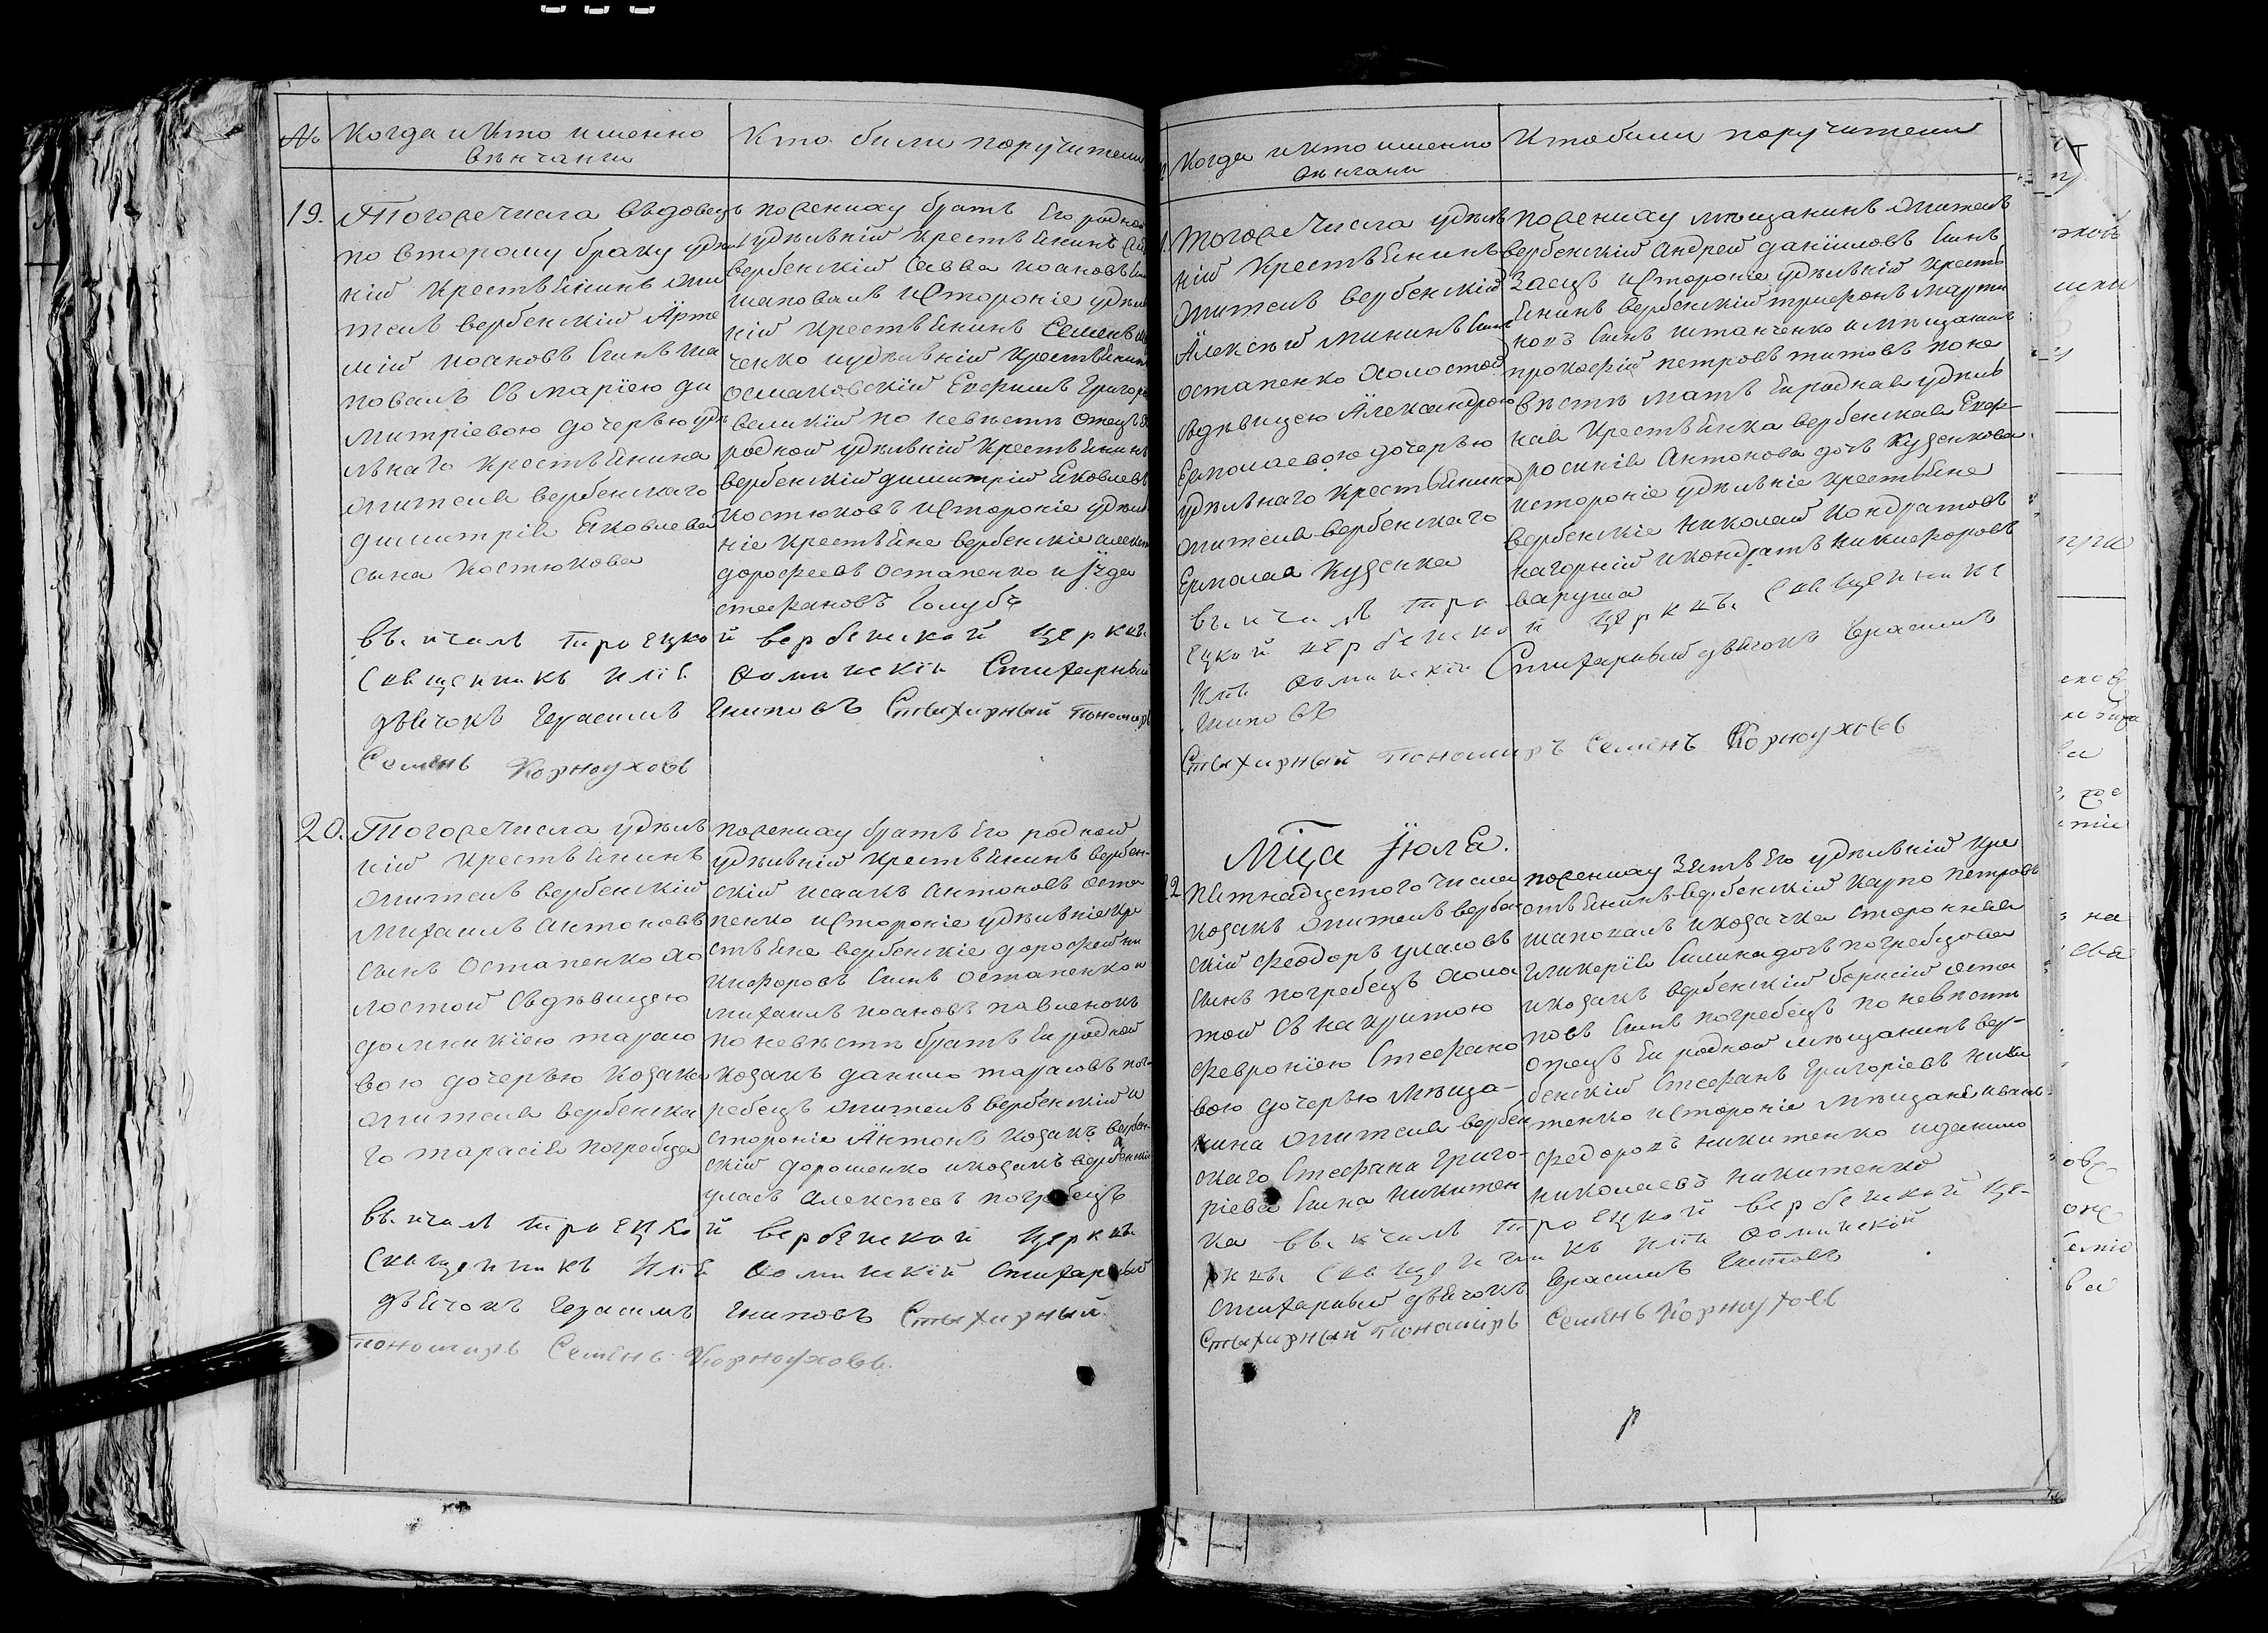 №
Когда и Кто именно
вѣнчани
Кто били поручители
19.
Тогоже Числа въдовецъ
по второму браку удѣл
ній Крестьянинъ жи
тель вербенскій Арте
мій Иоановъ Синъ Ша
повалъ Съ Маріею ди
митріевою дочерью удѣ
лнаго Крестьянина
жителя вербенскаго
димитрія Яковлева
сына Костюкова
поженику братъ Его родной
удѣлній Крестьянинъ
вербенскій Савва Иоановъ
Шаповалъ и Стороніе удѣл
ній Крестьянинъ Семенъ
ченко и удѣлній Крестьянинъ
осмаковскій Евфимъ Григоръ
великій по невѣсти отецъ
родной удѣлній Крестьянинъ
вербенскій димитрій Яковлевъ
Костюковъ и Стороніе удѣл
ніе Крестьяне вербенскіе
дорофеевъ Остапенко и Іуда
стефановъ Голубъ
вѣнчалъ троецкой вербенской церкви
Священникъ Илія Стихарный
дьячокъ Герасимъ Гниповъ Стихирный Пономарь
Семенъ Корноуховъ
20.
Тогоже Числа удѣл
ній Крестьянинъ
житель вербенскій
Михаилъ Антоновъ
сынъ Остапенко хо
лостой Съ дѣвицею
домникіею тарасо
вою дочерью Козака
жителя вербенска
го тарасія погребца
поженику братъ Его родной
удѣлній Крестьянинъ вербен-
скій исаакъ Антоновъ Оста
пенко и Стороніе удѣлніе Кре
стьяне вербенскіе дорофей ни
кифоровъ Синъ Остапенко и
михаилъ Иоановъ павленокъ
по невѣсти братъ Ея родной
Козакъ данило тарасовъ пог-
ребецъ житель вербенскій и
стороніе Антонъ Козакъ вербен-
скій дорошенко и козакъ вербенскій
уласъ алексѣевъ погребецъ
вѣнчалъ троецкой вербенской церкви
Священникъ Илія Стихарный
дьячокъ Герасимъ Гниповъ Стихирный
пономарь Семенъ Корноуховъ
Когда и Кто именно
вѣнчани
Кто били поручители
Тогоже Числа удѣл
ній Крестьянинъ
житель вербенскій
Алексѣй Мининъ Синъ
остапенко Холостой
Съ дѣвицею Александрою
Ермолаевою дочерью
удѣлнаго Крестьянина
жителя вербенскаго
Ермолая Куценка
поженику мѣщанинъ житель
вербенскій Андрей даніиловъ Синъ
Заецъ и Стороніе удѣлній Кресть
янинъ вербенскій трифонъ Марти
новъ Синъ Штанченко и мѣщанинъ
прокофій петровъ титовъ по не
вѣсти мать Ея родная удѣл
ная Крестьянка вербенская Евф-
росинія Антонова дочь Куценкова
и стороніе удѣлніе Крестьяне
вербенскіе Николай Кондратовъ
нагорній и кондратъ Никифоровъ
варуша
вѣнчалъ тро
ецкой вербенской церкви Священникъ
Илія Стихарный дьячокъ Герасимъ
Гниповъ
Стихирный Пономарь Семенъ Корноуховъ
Мца Іюля.
22
Пятнадцатого Числа
Козакъ житель вербен
скій Феодоръ уласовъ
Синъ погребецъ Холо
стой Съ накритою
Февроніею Стефано
вою дочерью Мѣща-
нина жителя вербен
скаго Стефана Григо-
ріева Сина Никитен
ка
поженику Зять Его удѣлній Кре
стьянинъ вербенскій Карпо Петровъ
Шаповалъ и козачка сторонняя
Гликерія Силина дочь погребцова
и козакъ вербенскій борисій оста
повъ Синъ погребецъ по невѣсти
Отецъ Ея родной мѣщанинъ вер-
бенскій Стефанъ Григоріевъ Ники
тенко и Стороніе мѣщане Иванъ
Федоровъ никитенко и данило
николаевъ никитенко
вѣнчалъ троецкой вербенской це-
ркви Священникъ Илія
Стихарный дьячокъ Герасимъ Гниповъ
Стихирный Пономарь Семенъ Корноуховъ